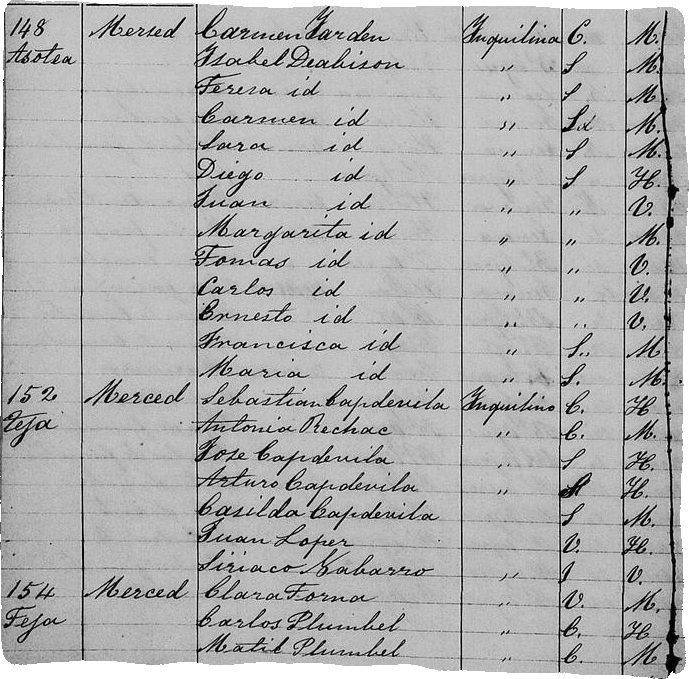 148 Mersed Carmen Jarden Inquilina C. M.
Asotea Isabel Deabison " S M.
Teresa id " S M
Carmen id " M.
Sara id " S M.
Diego id " S H.
Juan id " " V.
Margarita id " " M.
Tomas id " " V.
Carlos id " " V.
Ernesto id " " V.
Francisca id " S. M
Maria id " S. M.
152 Merced Sebastian Capdevila Inquilino C. H
Teja Antonia Rechac " C. M.
Jose Capdevila " S H.
Arturo Capdevila " S H.
Casilda Capdevila S M.
Juan Loper V. H.
Siriaco Nabarro " V.
154 Merced Clara Torna " V. M.
Teja Carlos Plumbel " C. H
Matil Plumbel " C. M